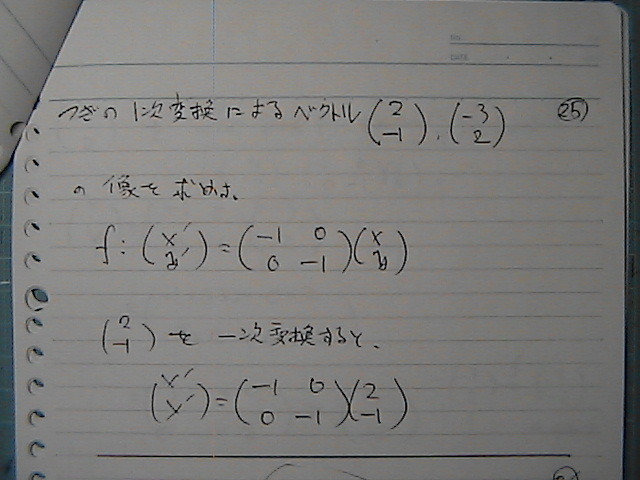 No.
DATE
つぎの1次変換によるベクトル(2 -1), (-3 2) ㉕
の像を求めよ。
f: (x' y') = (-1 0 0 -1)(x y)
(2 -1)を一次変換すると、
(x' y') = (-1 0 0 -1)(2 -1)